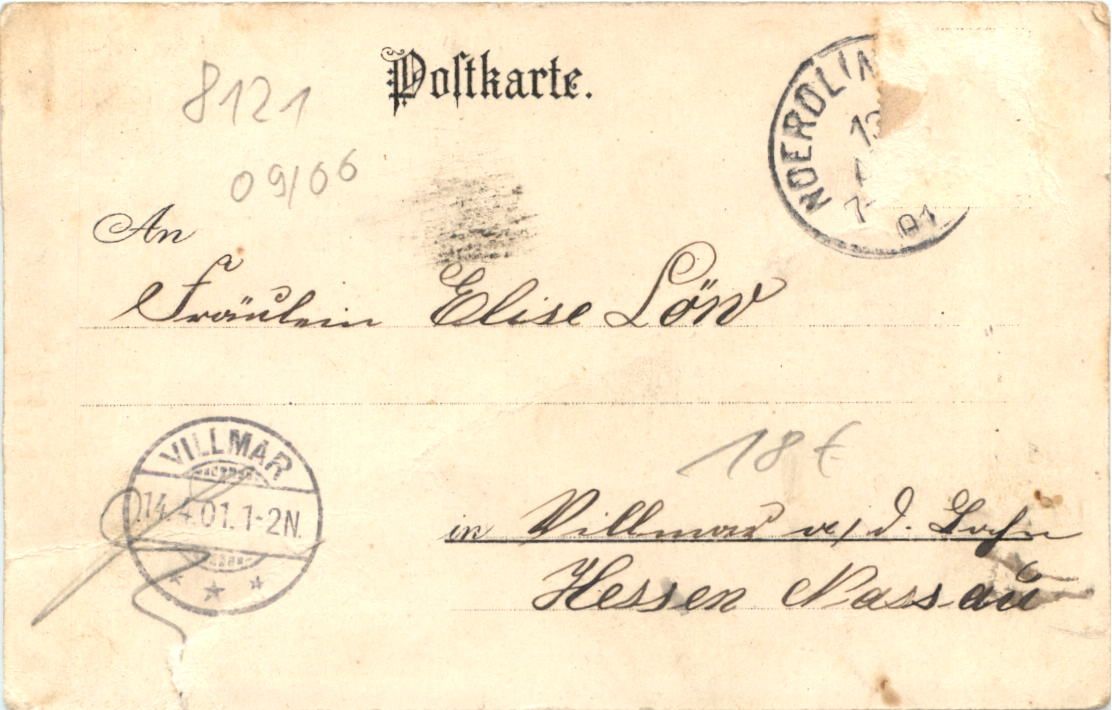 Postkarte.
8121
09/06
NOERDLIN
13
01
An
Fräulein Elise Löw
VILLMAR
14.4.01.1-2N.
18€
in Villmar a/d. Lahn
Hessen Nassau